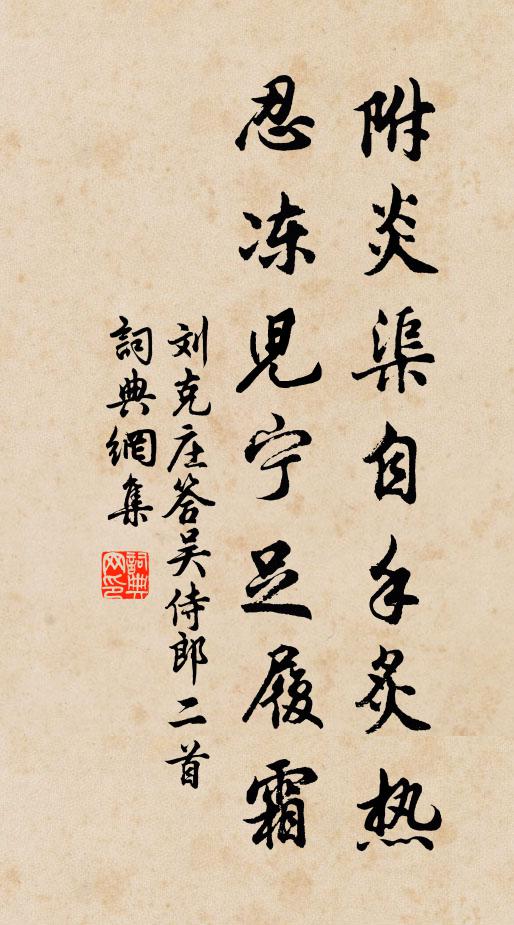 附炎渠自手炙热
忍冻児宁足履霜
刘克庄答吴侍郎二首
詞典網集
詞典网印